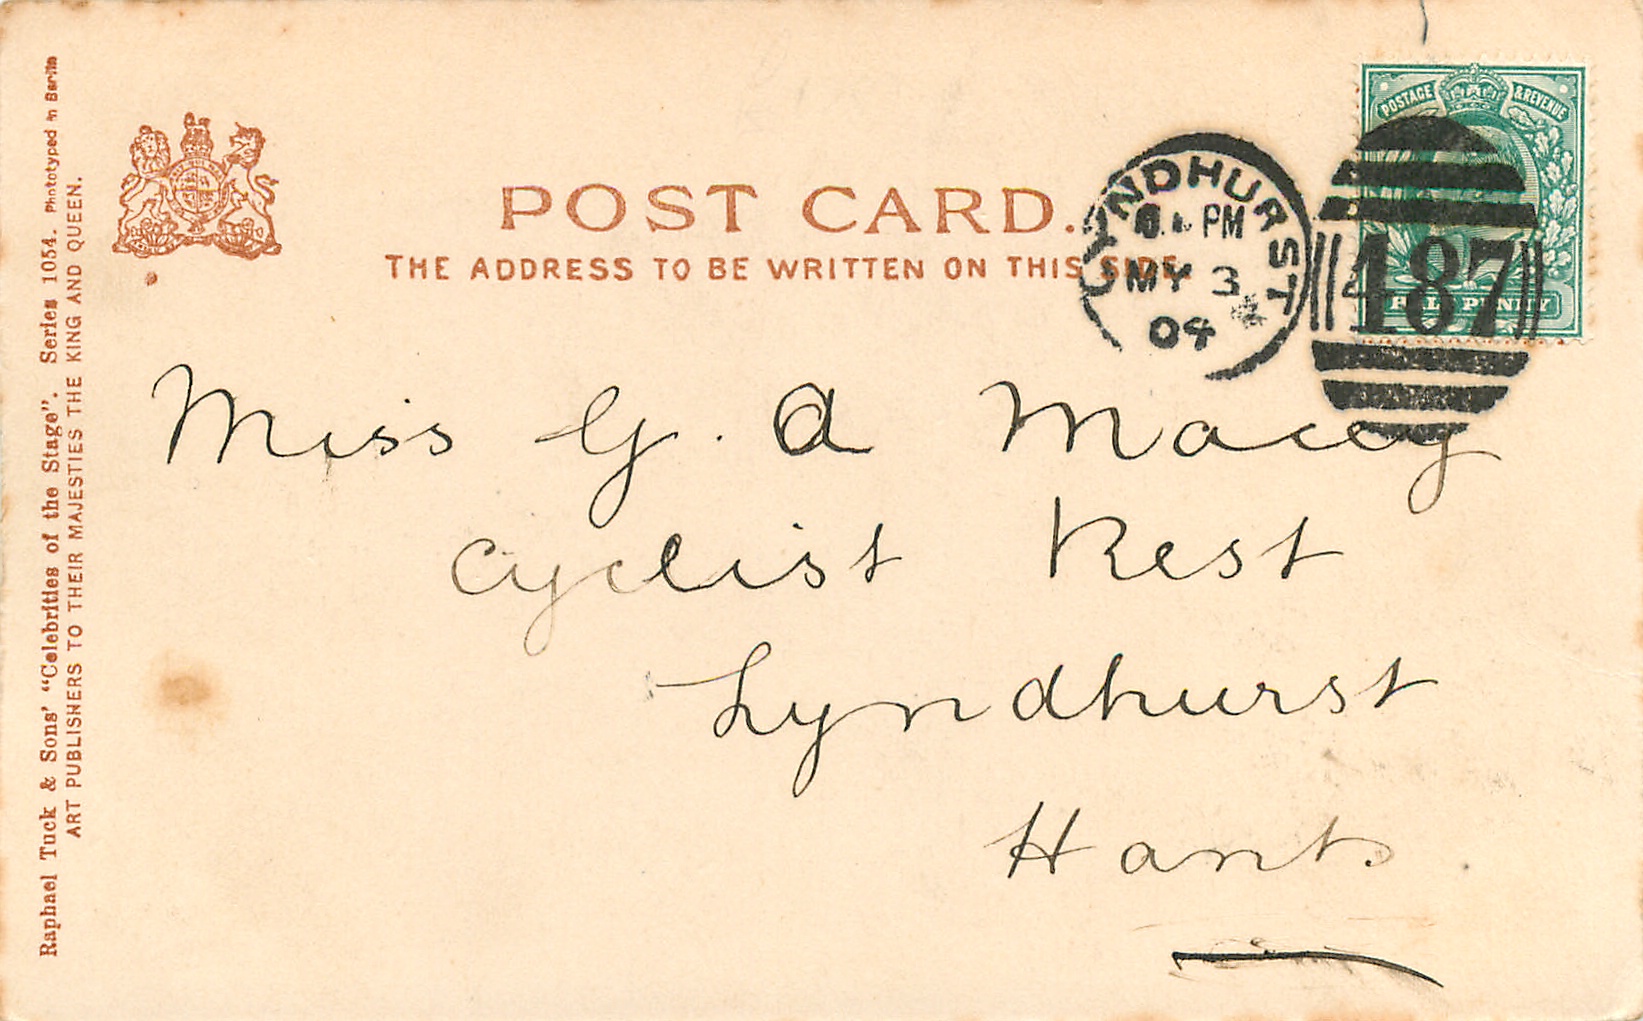 Raphael Tuck & Sons' "Celebrities of the Stage". Series 1054. Phototyped in Berlin
ART PUBLISHERS TO THEIR MAJESTIES THE KING AND QUEEN.
POST CARD.
THE ADDRESS TO BE WRITTEN ON THIS SIDE
LYNDHURST
PM
MY 3
04
POSTAGE & REVENUE
HALFPENNY
487
Miss G. A Macey
Cyclist Rest
Lyndhurst
Hants.